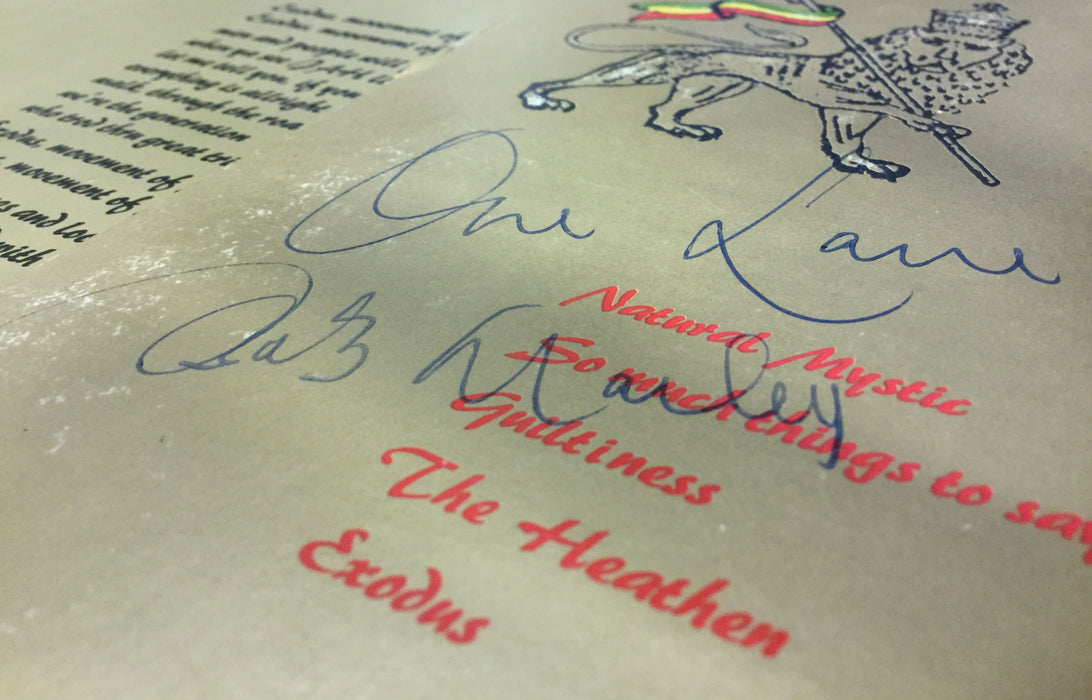 Exodus, movement of
Exodus, movement of
men and people
when you see
tell you, if you
everything is alright
walk, through the
we're the generation
who trod thru great
Exodus, movement of
movement of
and
One Love
Bob Marley
Natural Mystic
So much things to say
Guiltiness
The Heathen
Exodus